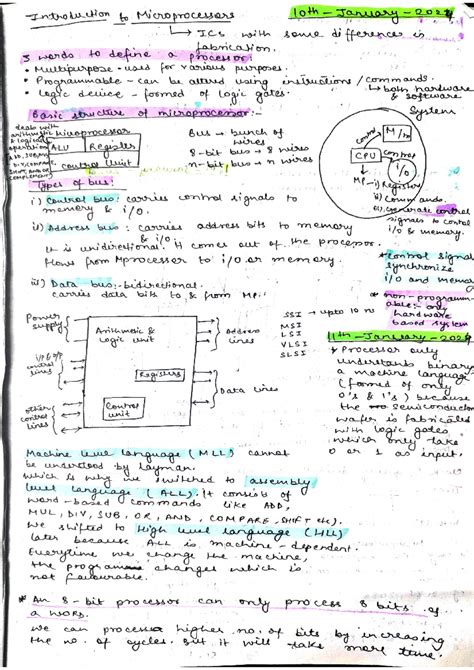 Introduction to Microprocessors
10th-January-2024
→ ICs with some difference in fabrication.
3 words to define a processor:
• Multipurpose - used for various purposes.
• Programmable - can be altered using instructions / commands.
→ both hardware & software
• Logic device - formed of logic gates.
Basic structure of microprocessor:-
System
deals with arithmetic & logical operation
Microprocessor
ALU
Register
Control Unit
Bus → bunch of wires
8-bit bus → 8 wires
n-bit bus → n wires
Control
M/m
CPU
Control
I/O
MP - i) Registers
ii) Commands.
iii) Generate control signals to control I/O & memory.
Types of bus:
i) Control bus: carries control signals to memory & i/o.
ii) Address bus: carries address bits to memory & i/o
is unidirectional. It comes out of the processor.
flows from Mprocessor to i/o or memory.
* control signal synchronize I/O and memory
iii) Data bus: bidirectional.
carries data bits to & from MP.
* non-programmable:- only hardware based system
Power supply
Arithmetic & Logic unit
Registers
Control unit
Address lines
Data lines
other control lines
SSI → upto 10
MSI
LSI
VLSI
SLSI
11th-January-2024
* Processor only understands binary
a machine language
(formed of only
0's & 1's) because
the semiconductor
wafer is fabricated
with logic gates
which only take
0 or 1 as input.
Machine level language (MLL) cannot
be understood by layman.
which is why we switched to assembly
level language (ALL). It consists of
word-based commands like ADD,
MUL, DIV, SUB, OR, AND, COMPARE, SHIFT etc).
We shifted to High level language (HLL)
later because ALL is machine-dependent.
Everytime we change the machine,
the program changes which is
not favourable.
* An 8-bit processor can only process 8 bits of
a word.
we can process higher no. of bits by increasing
the no. of cycles but it will take more time.